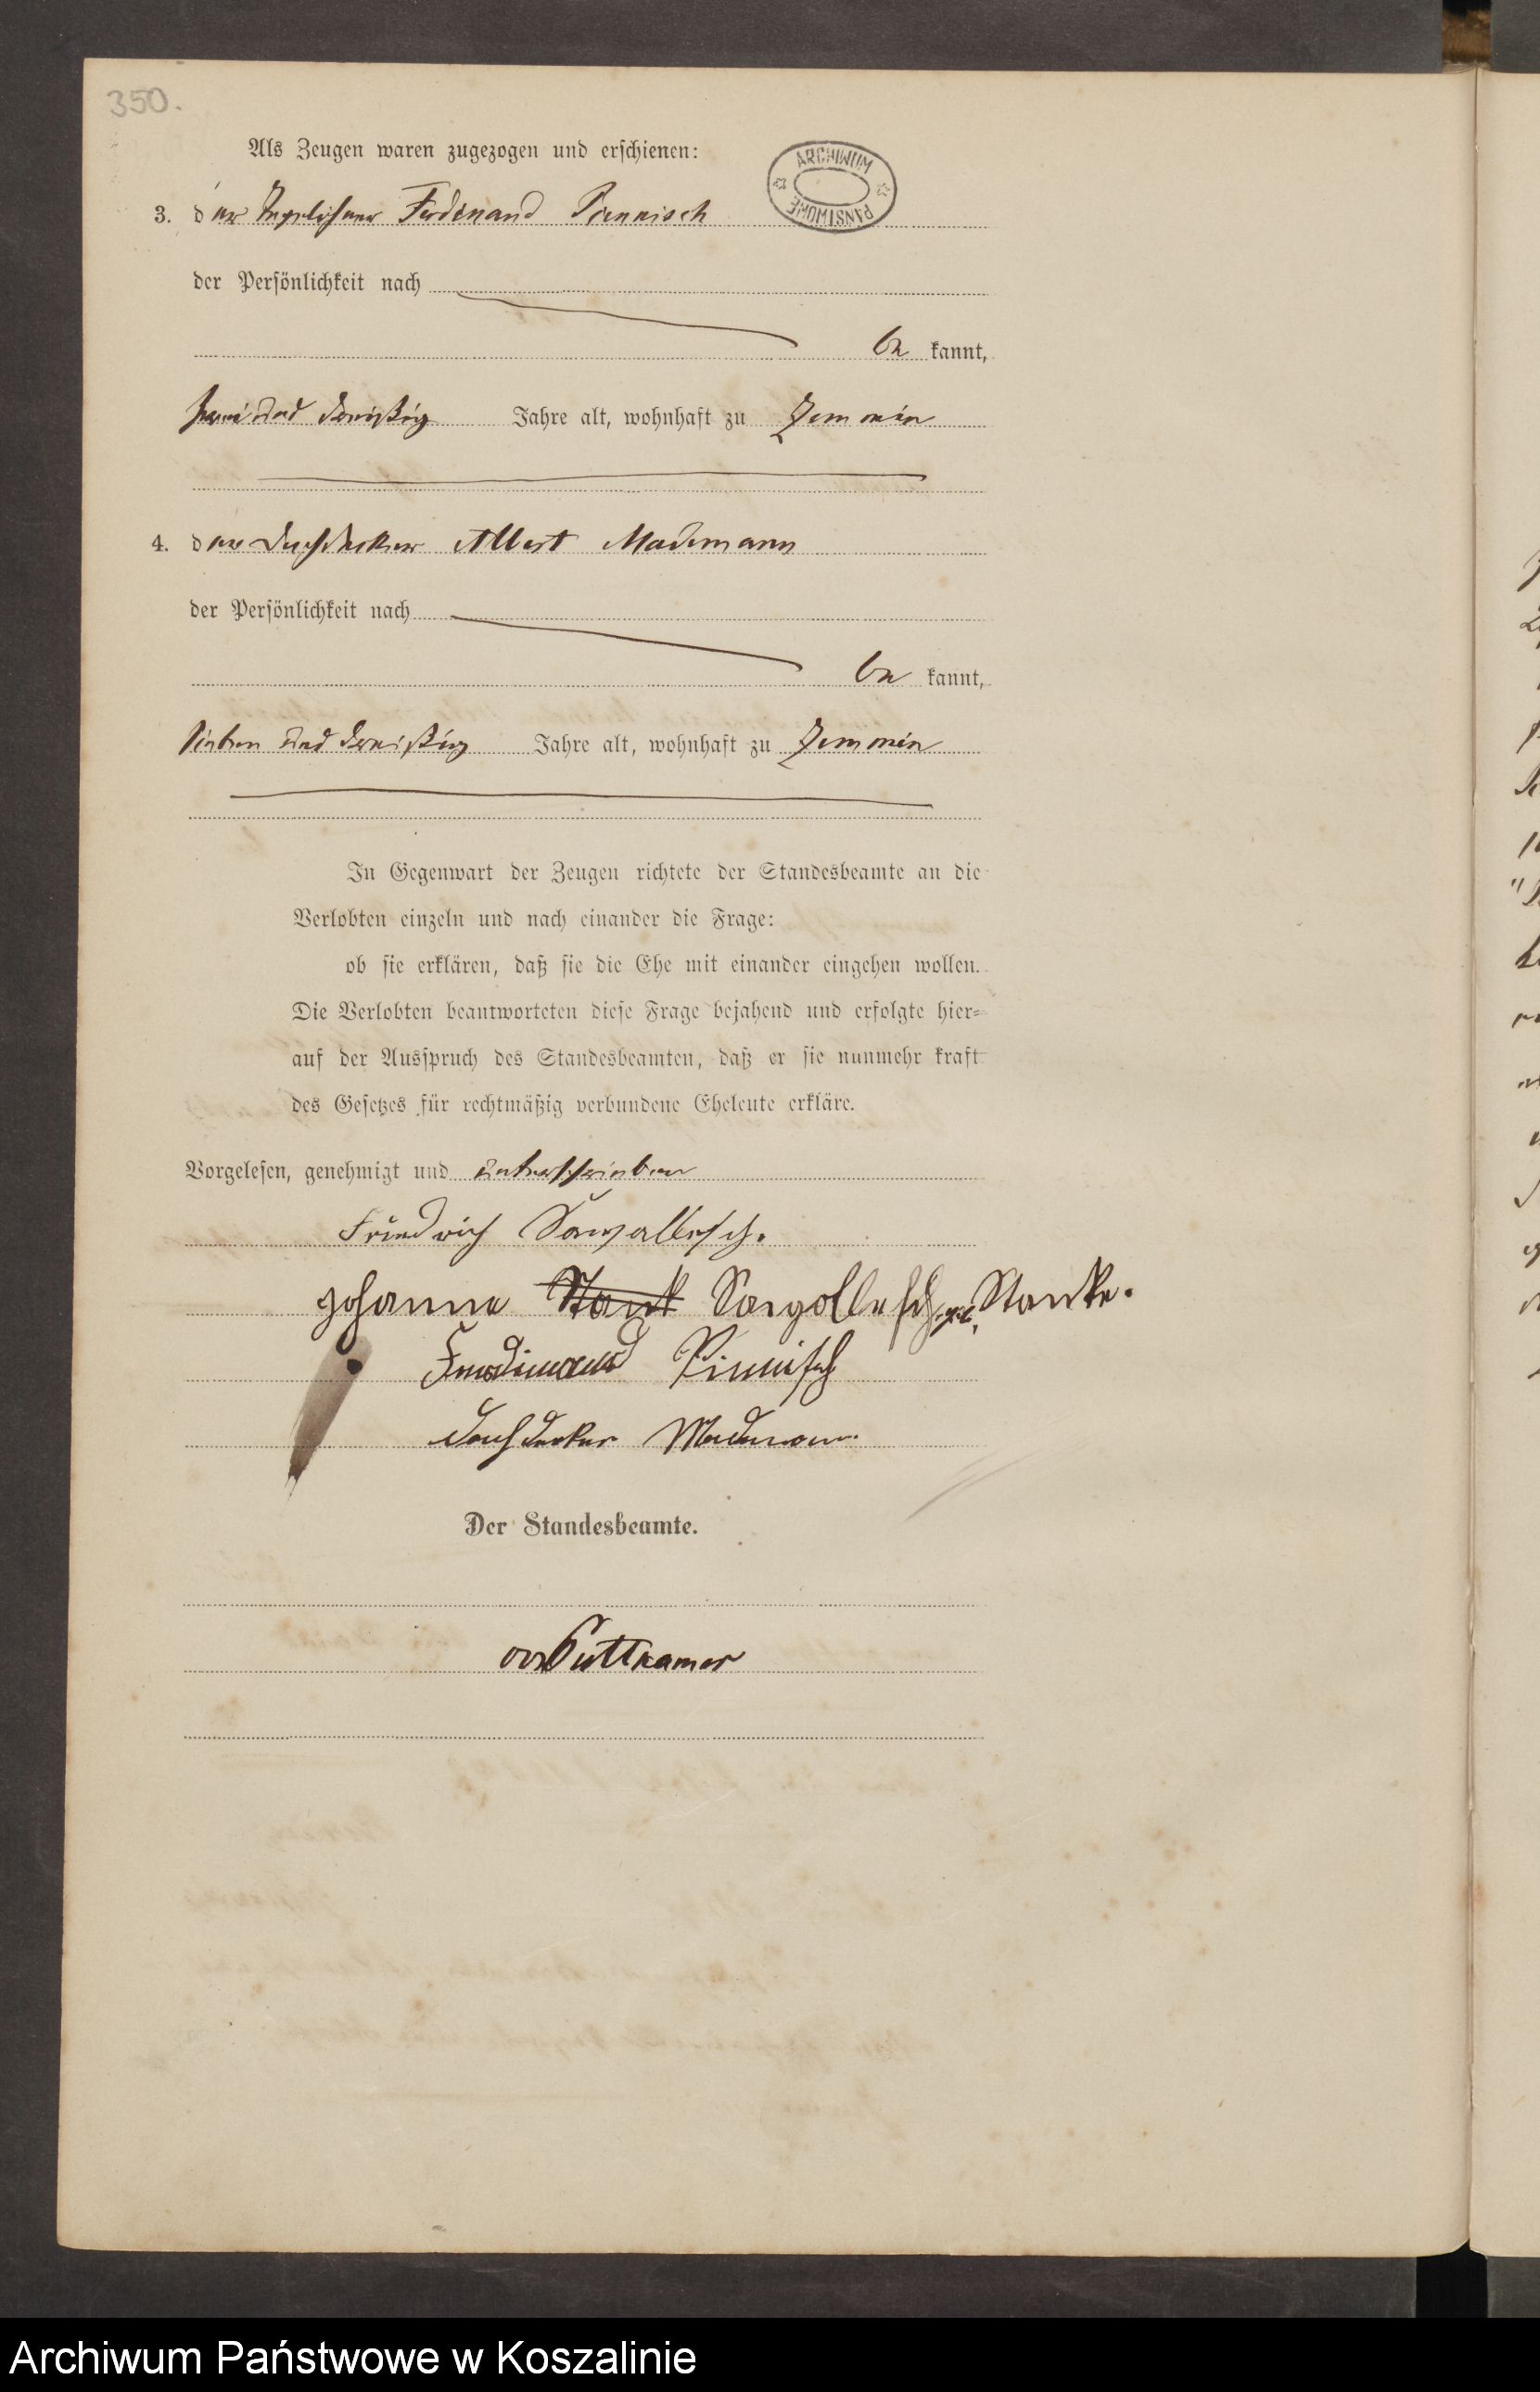 350.
Als Zeugen waren zugezogen und erschienen:
ARCHIWUM PAŃSTWOWE
3. der Tagelöhner Ferdinand Pinnisch
der Persönlichkeit nach
be kannt,
zwei und dreißig Jahre alt, wohnhaft zu Zemmin
4. der Dachdecker Albert Mademann
der Persönlichkeit nach
be kannt,
sieben und dreißig Jahre alt, wohnhaft zu Zemmin
In Gegenwart der Zeugen richtete der Standesbeamte an die
Verlobten einzeln und nach einander die Frage:
ob sie erklären, daß sie die Ehe mit einander eingehen wollen.
Die Verlobten beantworteten diese Frage bejahend und erfolgte hier-
auf der Ausspruch des Standesbeamten, daß er sie nunmehr kraft
des Gesetzes für rechtmäßig verbundene Eheleute erkläre.
Vorgelesen, genehmigt und unterschrieben
Friedrich
Johanne Stank geb. Stanke.
Ferdinand Pinnisch
Dachdecker Mademann
Der Standesbeamte.
von Puttkamer
Archiwum Państwowe w Koszalinie